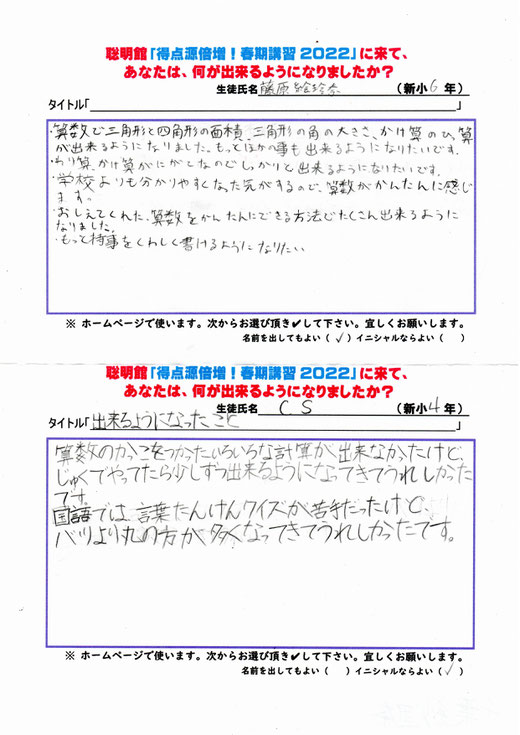 聡明館「得点源倍増!春期講習2022」に来て、
あなたは、何が出来るようになりましたか?
生徒氏名 藤原 (新小6年)
タイトル「 」
・算数で三角形と四角形の面積、三角形の角の大きさ、かけ算のひっ算
が出来るようになりました。もっとほかの事も出来るようになりたいです。
・わり算、かけ算がにがてなのでしっかりと出来るようになりたいです。
・学校よりも分かりやすくなった気がするので、算数がかんたんに感じ
ます。
・おしえてくれた、算数をかんたんにできる方法でたくさん出来るように
なりました。
・もっと詩事をくわしく書けるようになりたい
※ ホームページで使います。次からお選び頂き✔して下さい。宜しくお願いします。
名前を出してもよい(✓)イニシャルならよい( )
聡明館「得点源倍増!春期講習2022」に来て、
あなたは、何が出来るようになりましたか?
生徒氏名 C S (新小4年)
タイトル「出来るようになったこと 」
算数のかっこをつかたいろいろな計算が出来なかたけど、
じゅくでやってたら少しずつ出来るようになってきてうれしかった
です。
国語では、言葉たんけんクイズが苦手だったけど、
バツより丸の方が多くなってきてうれしかったです。
※ ホームページで使います。次からお選び頂き✔して下さい。宜しくお願いします。
名前を出してもよい( )イニシャルならよい(✓)